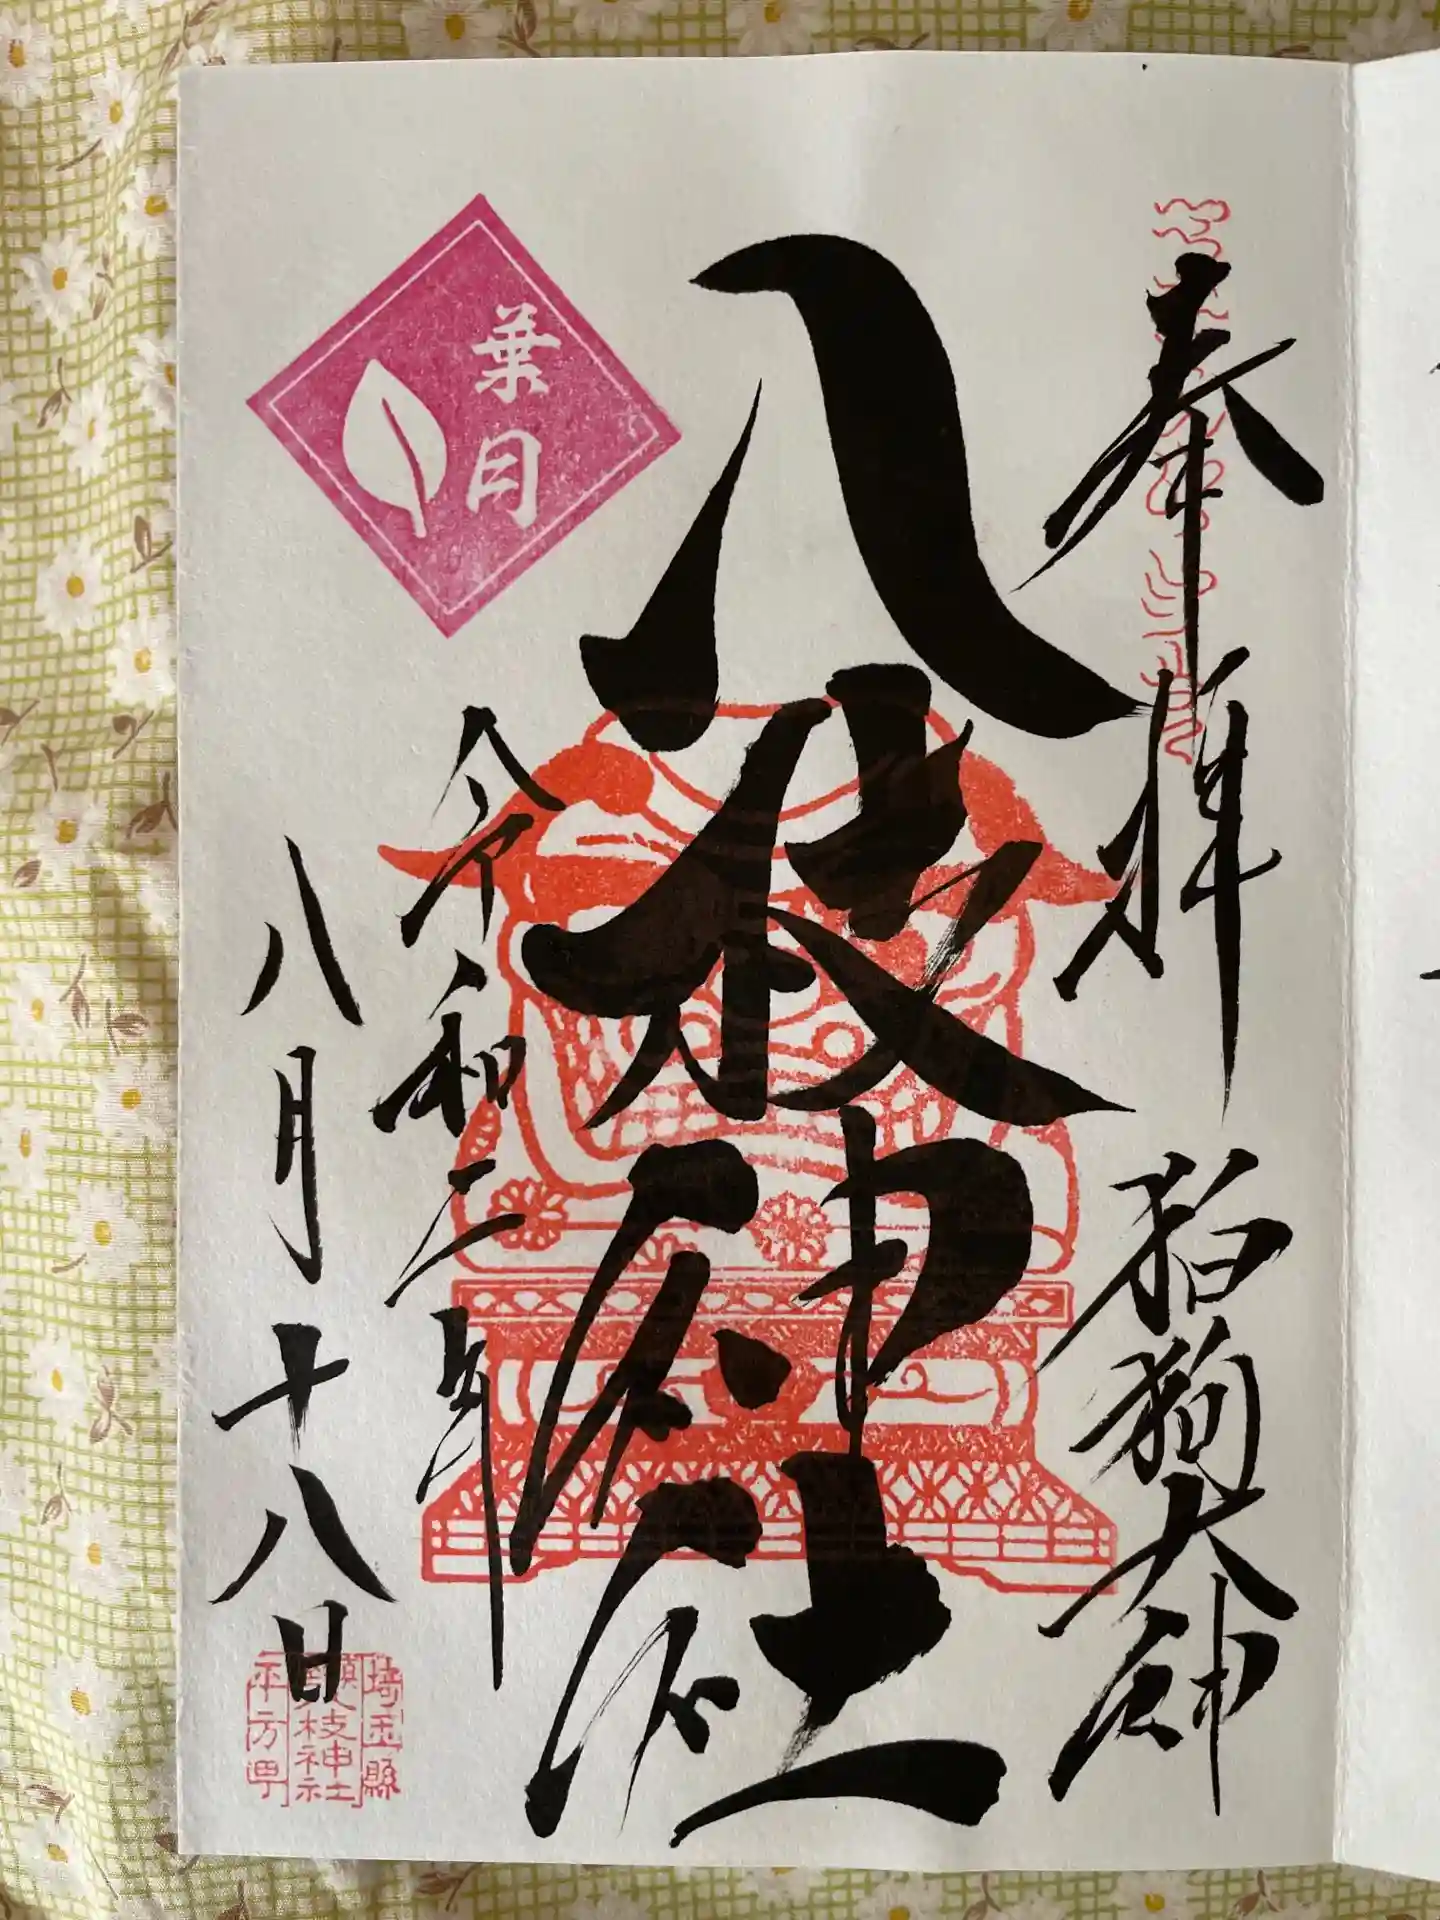 奉拝 狛狗大神
八枝神社
令和二年
八月十八日
葉月
埼玉縣
八枝神社
平方